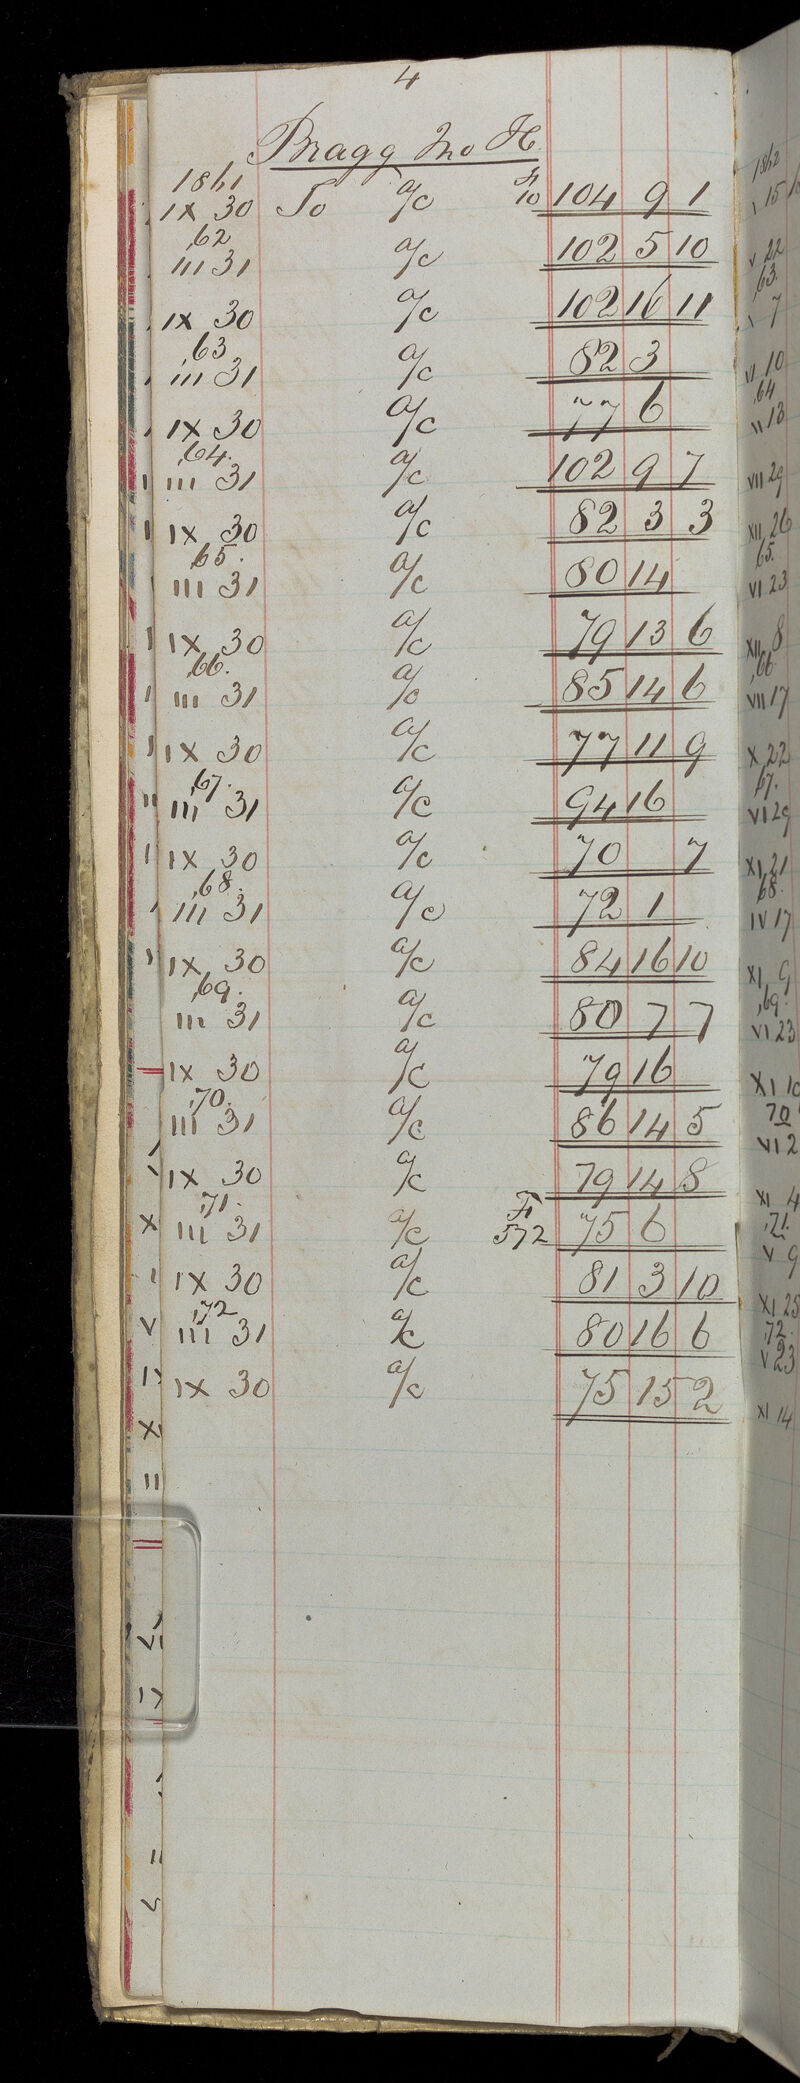 4
Bragg Jno H.
1861
IX 30 To a/c F 10 104 9 1
,62
III 31 a/c 102 5 10
IX 30 a/c 102 16 11
,63
III 31 a/c 82 3
IX 30 a/c 77 6
,64.
III 31 a/c 102 9 7
IX 30 a/c 82 3 3
,65.
III 31 a/c 80 14
IX 30 a/c 79 13 6
,66.
III 31 a/c 85 14 6
IX 30 a/c 77 11 9
,67.
III 31 a/c 94 16
IX 30 a/c 70 7
,68.
III 31 a/c 72 1
IX 30 a/c 84 16 10
,69.
III 31 a/c 80 7 7
IX 30 a/c 79 16
,70.
III 31 a/c 86 14 5
IX 30 a/c 79 14 8
,71.
III 31 a/c F 572 75 6
IX 30 a/c 81 3 10
,72
III 31 a/c 80 16 6
IX 30 a/c 75 15 2
1862
V 15
V 22
,63.
V 7
VI 10
,64
VII 29
XII 26
65.
VI 23
XII 8
,66
VII 17
X 22
67.
VI 29
XI 21
68.
IV 17
XI 9
,69.
VI 23
XI 10
70
VI 2
XI 4
,71.
V 9
XI 25
72.
V 23
XI 14